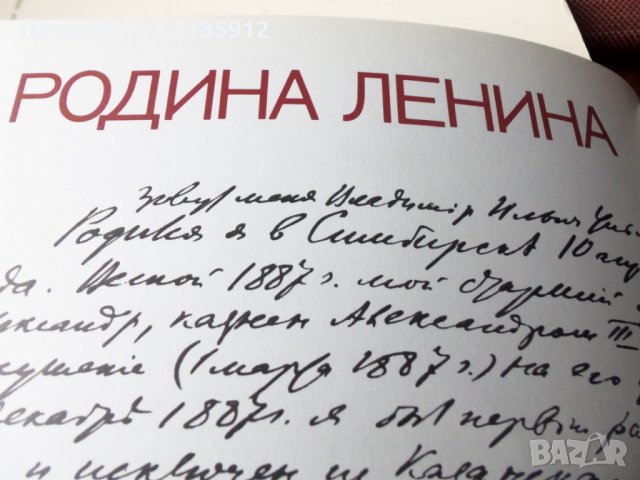 Потребител 2135912
РОДИНА ЛЕНИНА
Зовут меня Владимiр Ильич
Родился я в Симбирскѣ 10
да. Весной 1887 г. мой старший
ександр, казнен Александром III
кушенiе (1 марта 1887 г.) на его
декабрѣ 1887 г. я был первый раз
и исключен из Казанска
BAZAR